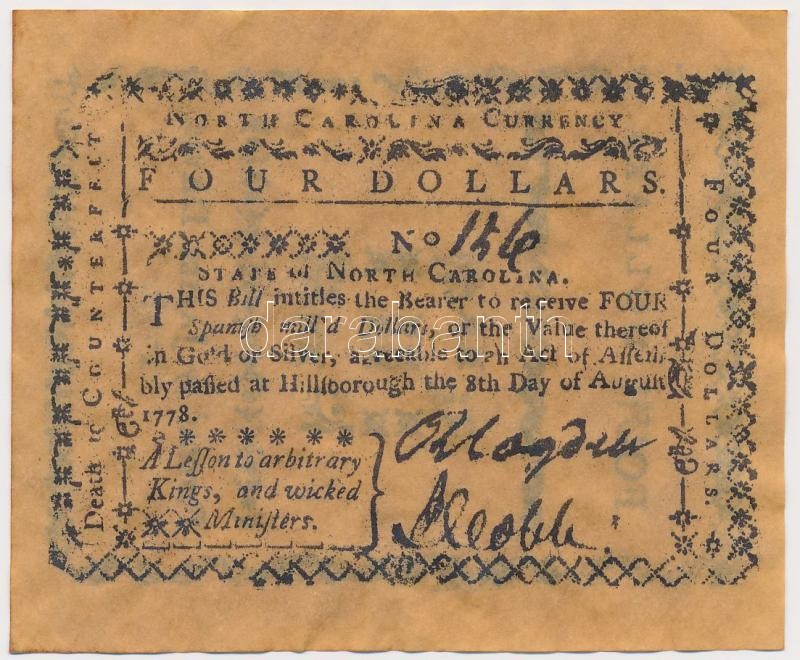 NORTH CAROLINA CURRENCY
FOUR DOLLARS.
No 156
STATE of NORTH CAROLINA.
THIS Bill intitles the Bearer to receive FOUR
Spanish mill'd Dollars, or the Value thereof
in Gold or Silver, agreeable to an Act of Assem-
bly passed at Hillsborough the 8th Day of August
1778.
A Lesson to arbitrary
Kings, and wicked
Ministers.
Death to COUNTERFEIT
FOUR DOLLARS.
darabanth